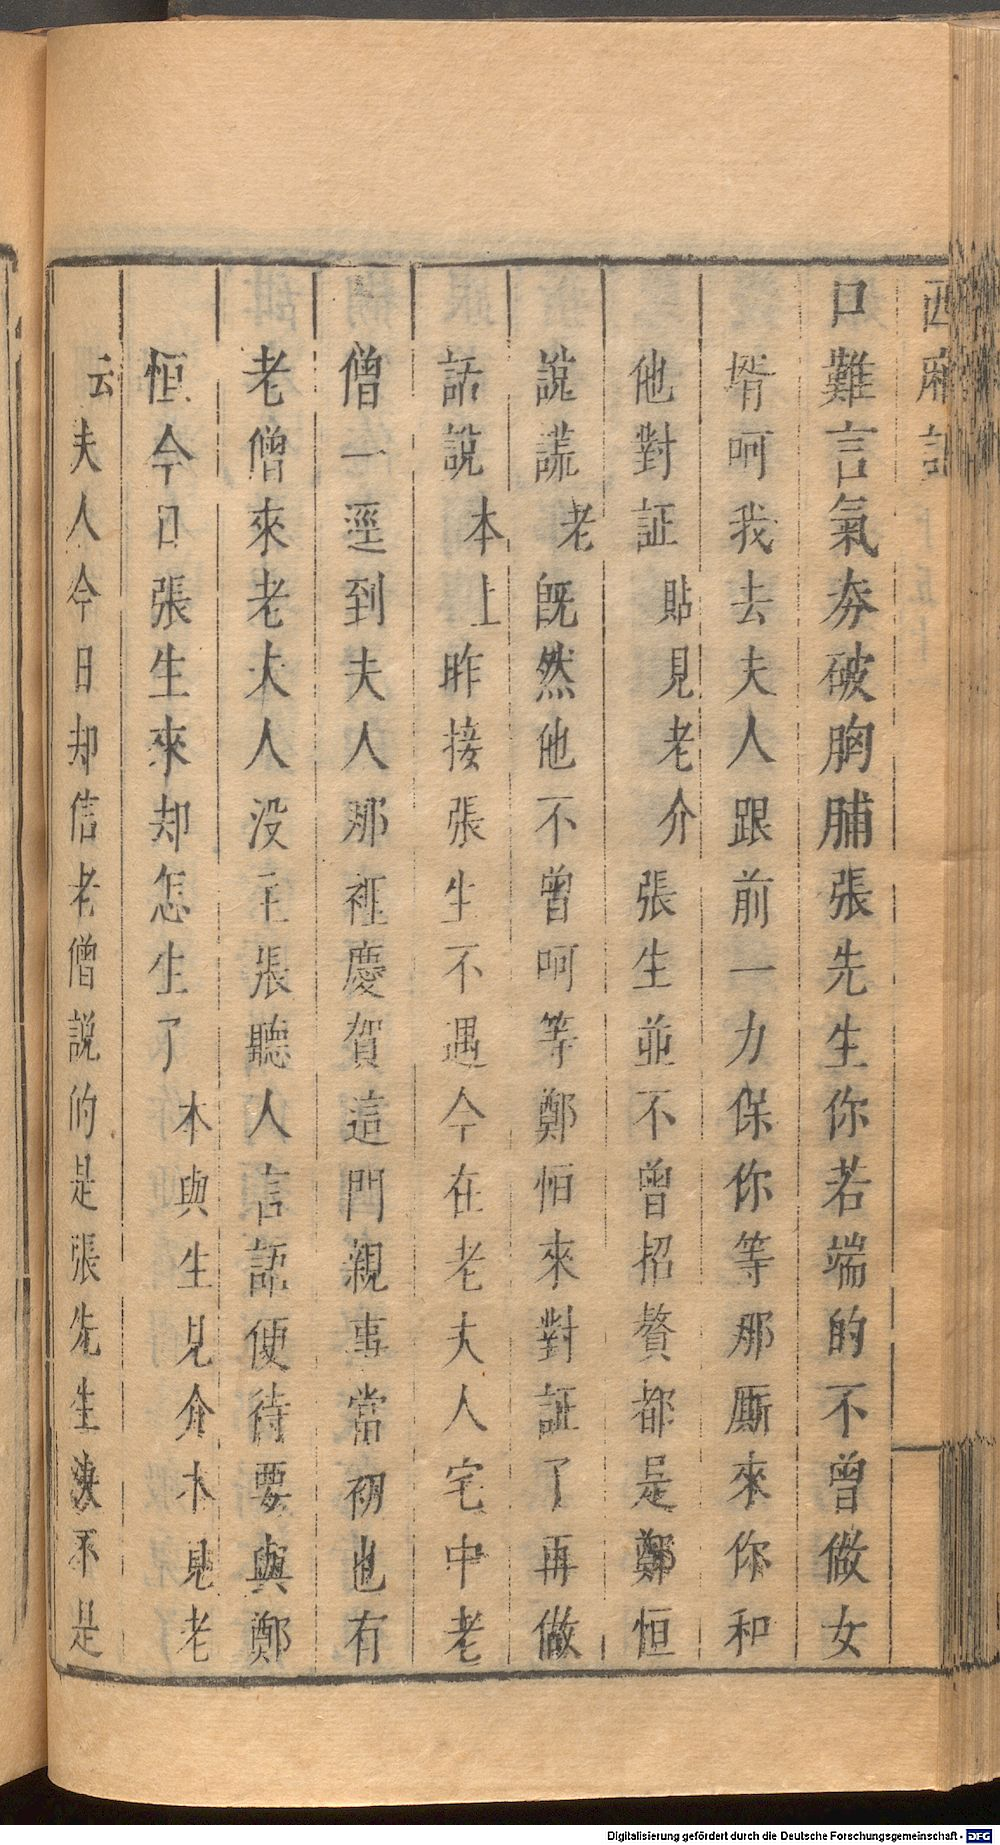 西廂記
口難言氣夯破胸脯張先生你若端的不曾做女
壻呵我去夫人跟前一力保你等那厮來你和
他對証貼見老介張生並不曾招贅都是鄭恒
說謊老既然他不曾呵等鄭恒來對証了再做
話說本上昨接張生不遇今在老夫人宅中老
僧一逕到夫人那裡慶賀這門親事當初也有
老僧來老夫人没主張聽人言語便待要與鄭
恒今日張生來却怎生了本與生見介本見老
云夫人今日却信老僧説的是張先生決不是
Digitalisierung gefördert durch die Deutsche Forschungsgemeinschaft - DFG